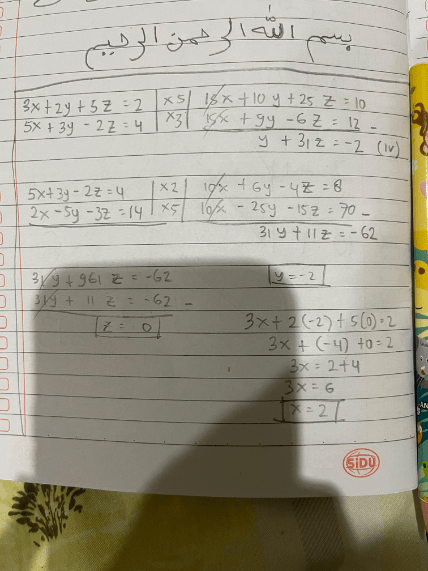 بسم الله الرحمن الرحيم
3x+2y+5z=2 | x5 | 15x+10y+25z=10
5x+3y-2z=4 | x3 | 15x+9y-6z=12 -
y+31z=-2 (iv)
5x+3y-2z=4 | x2 | 10x+6y-4z=8
2x-5y-3z=14 | x5 | 10x-25y-15z=70 -
31y+11z=-62
31y+961z=-62
31y+11z=-62 -
z=0
y=-2
3x+2(-2)+5(0)=2
3x+(-4)+0=2
3x=2+4
3x=6
x=2
SiDU